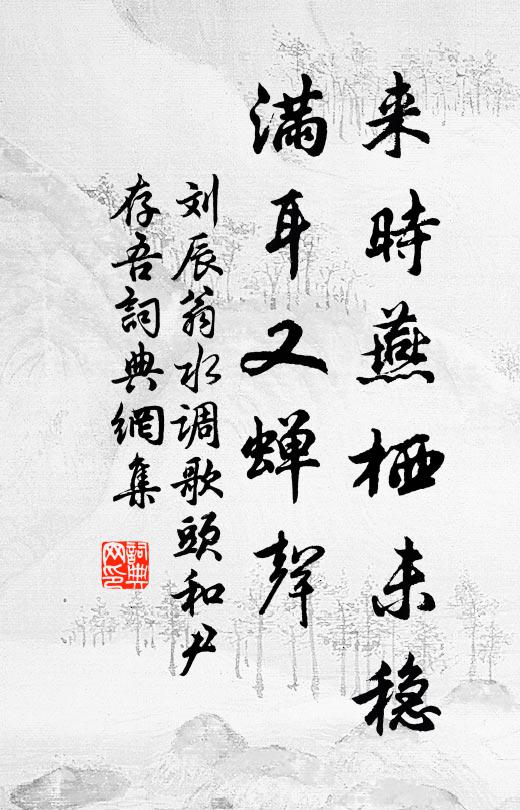 来時燕栖未稳
满耳又蝉聲
刘辰翁水调歌頭和尹
存吾詞典網集
詞典
网印